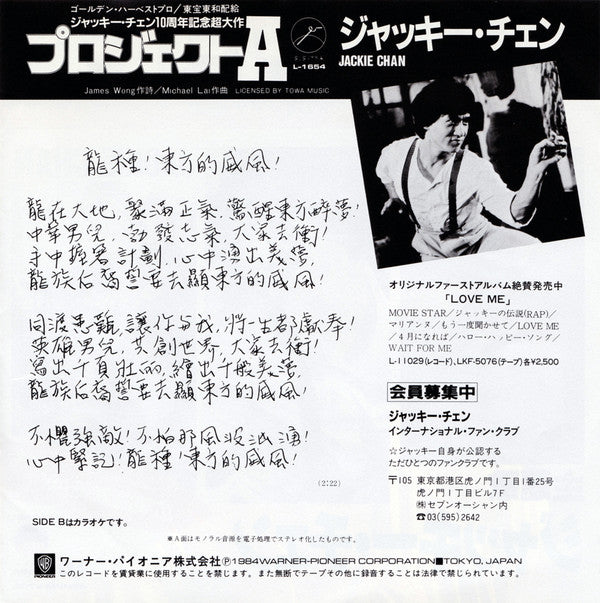 ゴールデン・ハーベストプロ/東宝東和配給
ジャッキー・チェン10周年記念超大作
プロジェクトA
L-1654
ジャッキー・チェン
JACKIE CHAN
James Wong作詩/Michael Lai作曲 LICENSED BY TOWA MUSIC
龍種!東方的威風!
龍在大地,聚滿正氣,驚醒東方醉夢!
中華男兒,勁發志氣,大家去衝!
手中擁著計劃,心中湧出美夢,
龍族后裔誓要去顯東方的威風!
同渡患難,讓你与我,將一生都獻奉!
英雄男兒,共創世界,大家去衝!
寫出千頁壯的,繪出千般美夢,
龍族后裔誓要去顯東方的威風!
不懼強敵!不怕那風波洶湧!
心中緊記!龍種!東方的威風!
(2:22)
オリジナルファーストアルバム絶賛発売中
「LOVE ME」
MOVIE STAR/ジャッキーの伝説(RAP)/
マリアンヌ/もう一度聞かせて/LOVE ME
/4月になれば/ハロー・ハッピー・ソング/
WAIT FOR ME
L-11029(レコード),LKF-5076(テープ)各¥2,500
会員募集中
ジャッキー・チェン
インターナショナル・ファン・クラブ
☆ジャッキー自身が公認する
ただひとつのファンクラブです。
〒105 東京都港区虎ノ門1丁目1番25号
虎ノ門1丁目ビル7F
㈱セブンオーシャン内
☎03(595)2642
SIDE Bはカラオケです。
※A面はモノラル音源を電子処理でステレオ化したものです。
WB
PIONEER
ワーナー・パイオニア株式会社Ⓟ1984WARNER-PIONEER CORPORATION■TOKYO, JAPAN
このレコードを賃貸業に使用することを禁じます。また無断でテープその他に録音することは法律で禁じられています。